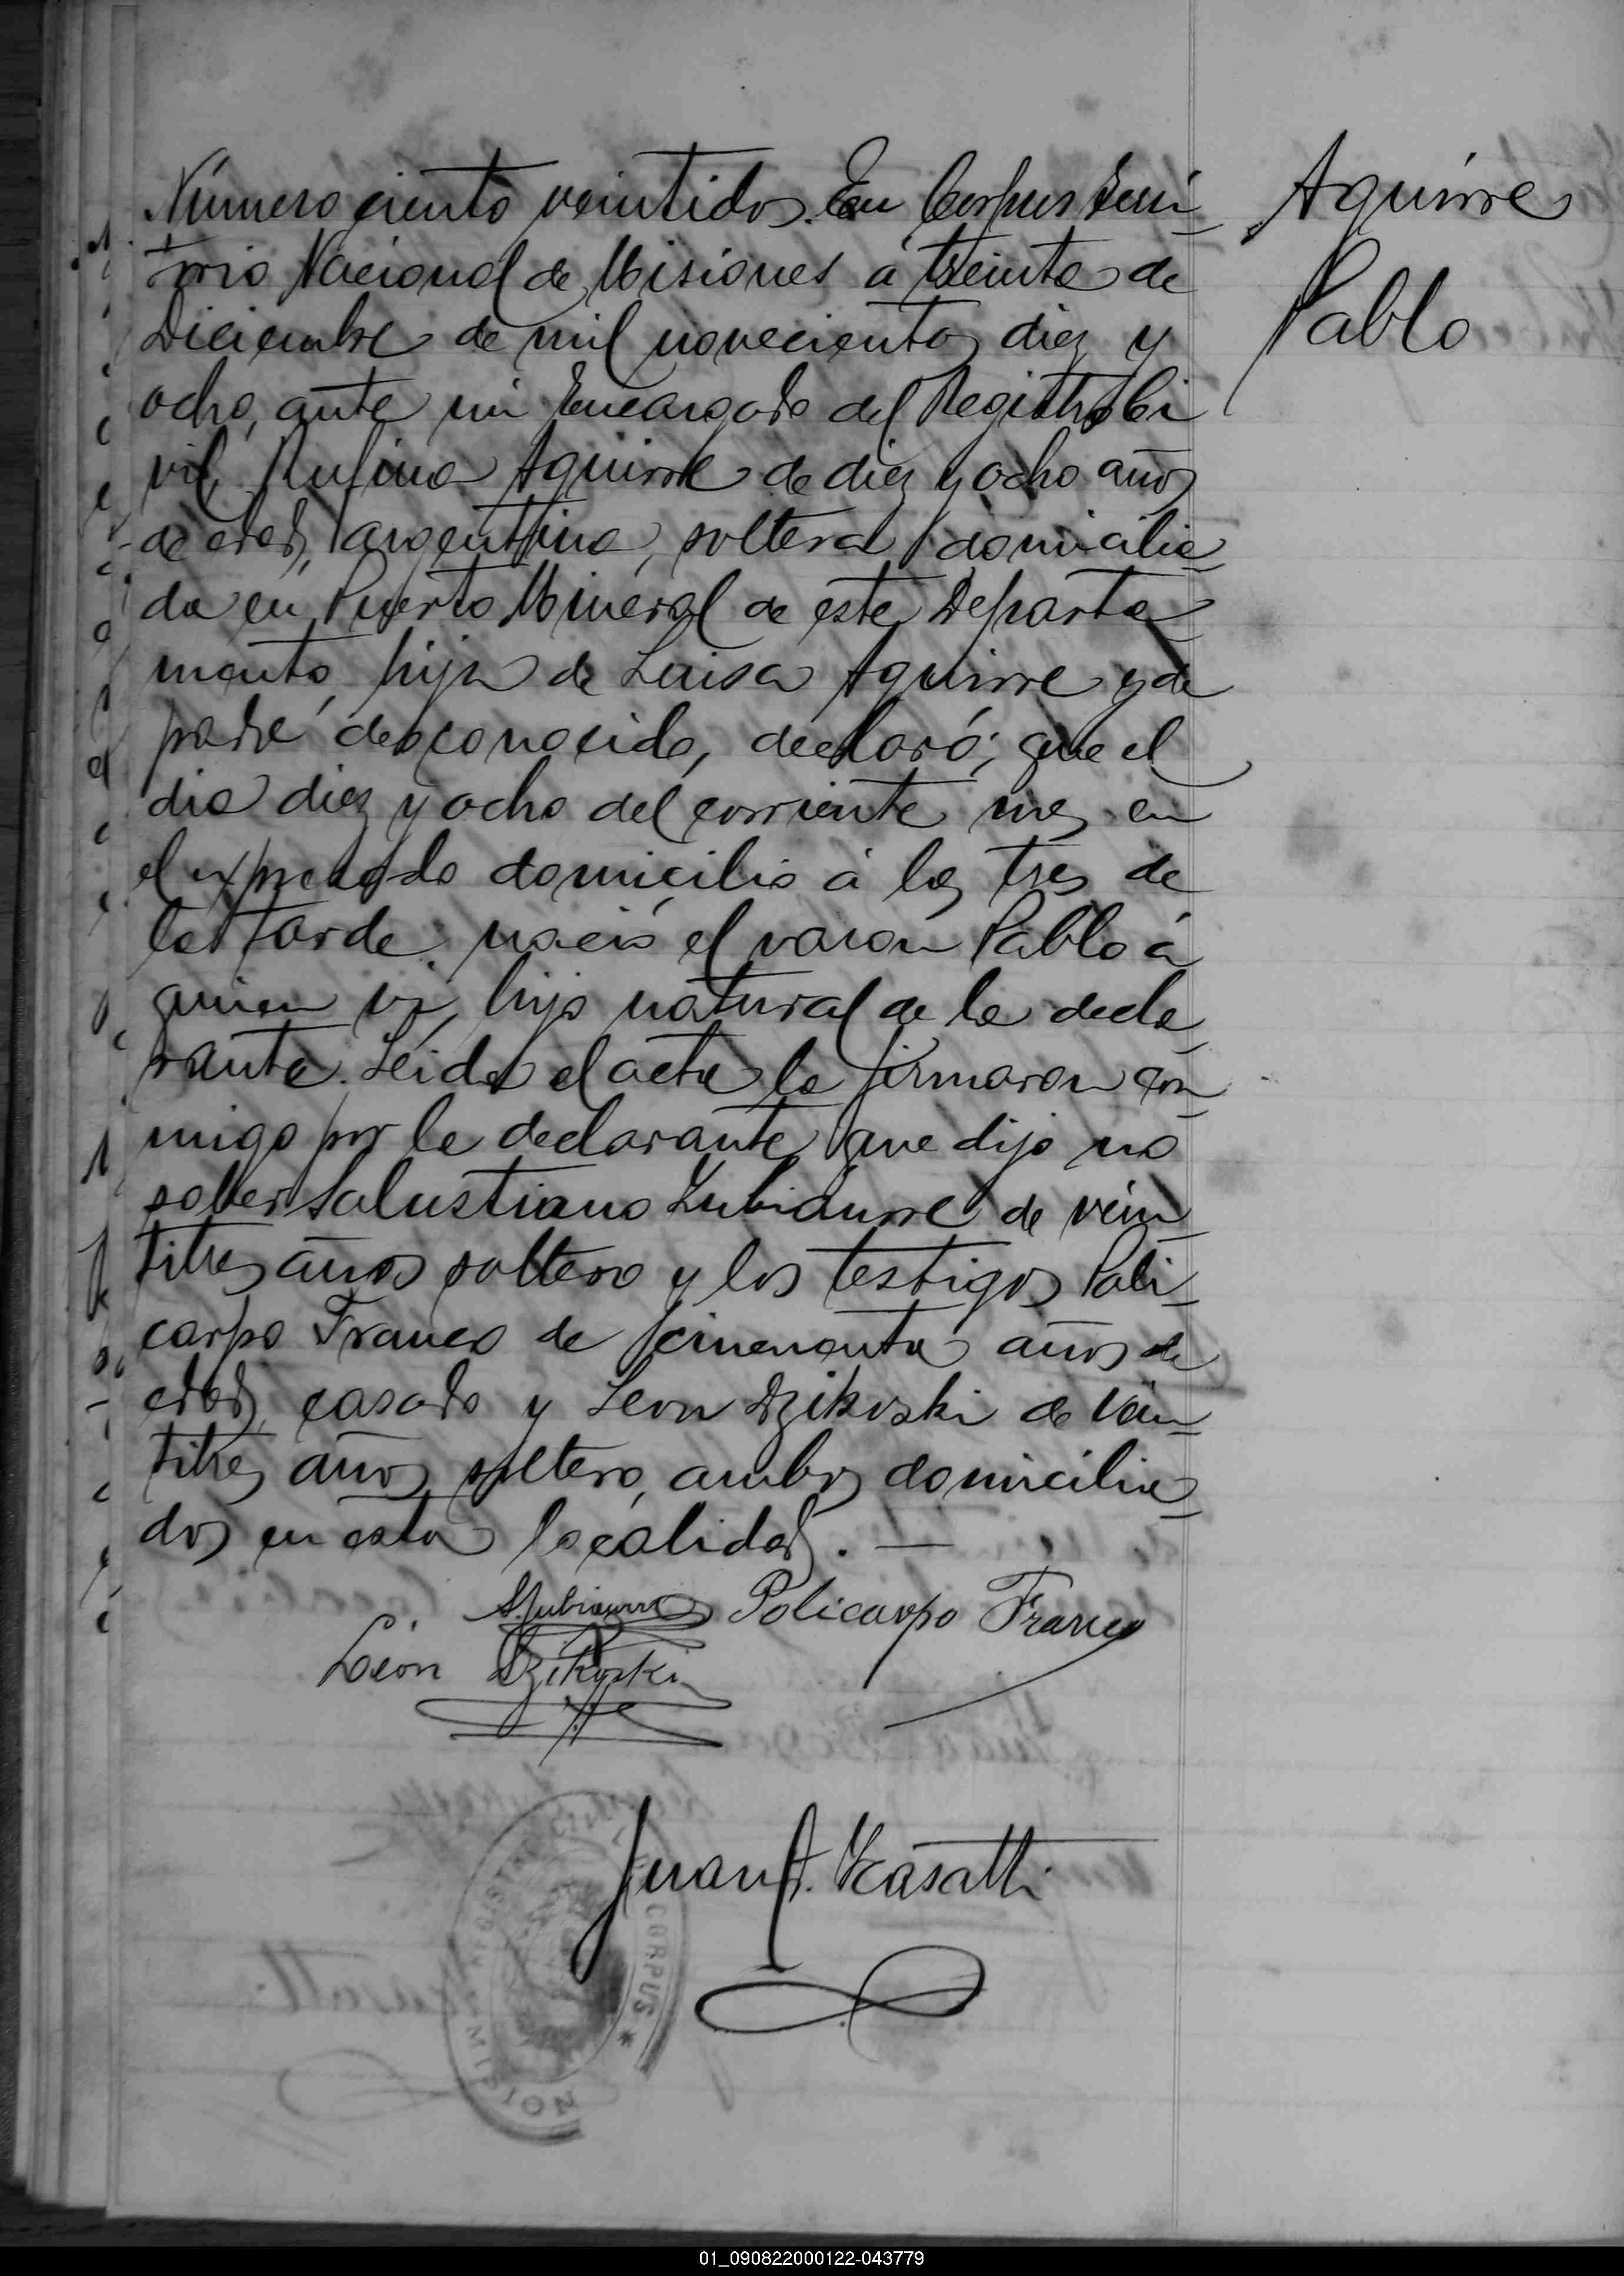 Número ciento veintidos. En Corpus Terri-
torio Nacional de Misiones á treinta de
Diciembre de mil novecientos diez y
ocho, ante mi Encargado del Registro Ci
vil, Rufina Aguirre de diez y ocho años
de edad, argentina, soltera domicilia-
da en Puerto Mineral de este Departa-
mento, hija de Luisa Aguirre y de
padre desconocido, declaró; que el
dia diez y ocho del corriente mes en
el expresado domicilio á las tres de
la tarde; nació el varon Pablo á
quien vi, hijo natural de la decla-
rante. Leida el acta la firmaron con-
migo por la declarante que dijo no
saber Salustiano Lubiaurre de vein-
titres años soltero y los testigos Poli-
carpo Franco de cincuenta años de
edad, casado y Leon Dzikoski de vein-
titres años, soltero, ambos domicilia-
dos en esta localidad. —
S. Lubiaurre Policarpo Franco
León Dzikoski
Juan A. Casatti
REGISTRO CIVIL CORPUS * MISION
Aguirre
Pablo
01_090822000122-043779